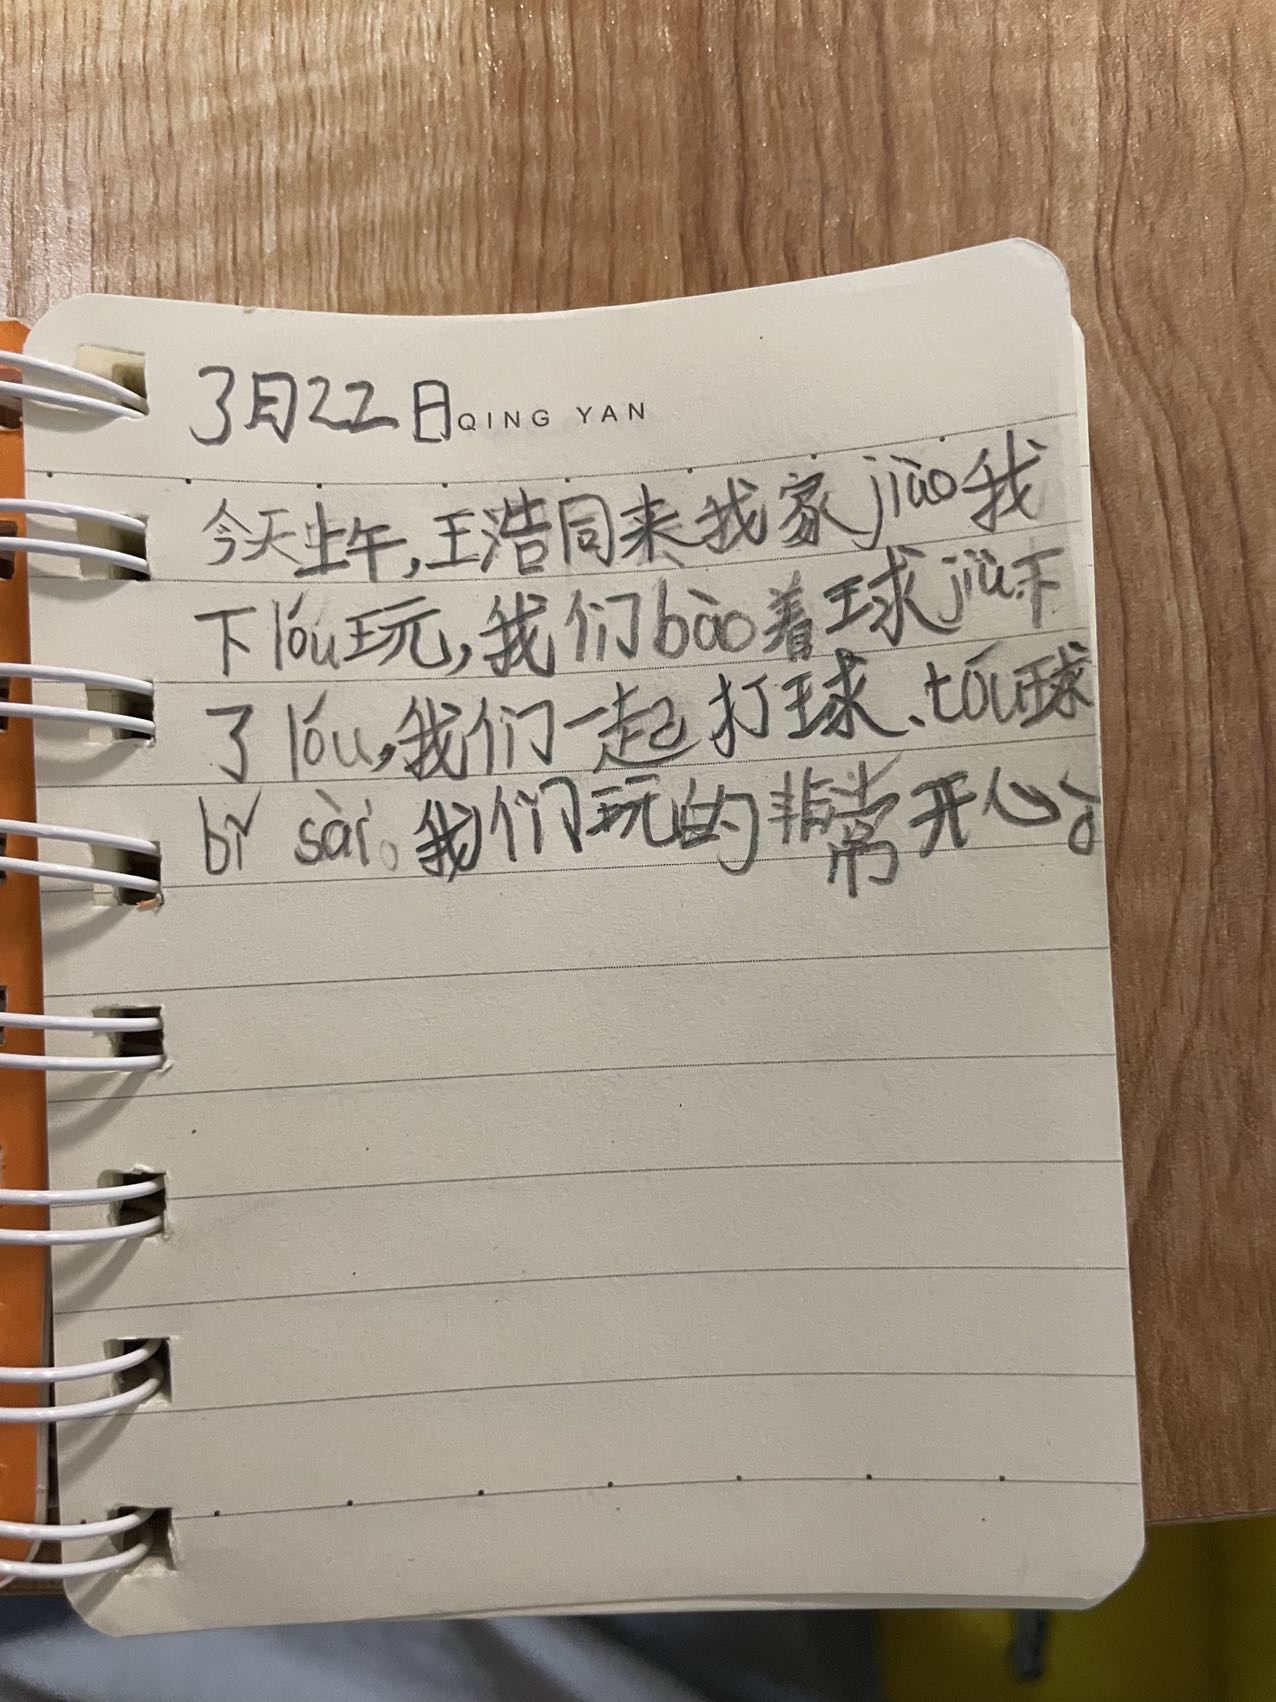 3月22日QING YAN
今天上午,王浩同来我家jiào我
下lóu玩,我们bào着球jiù下
了lóu,我们一起打球、tóu球
bǐ sài。我们玩的非常开心。